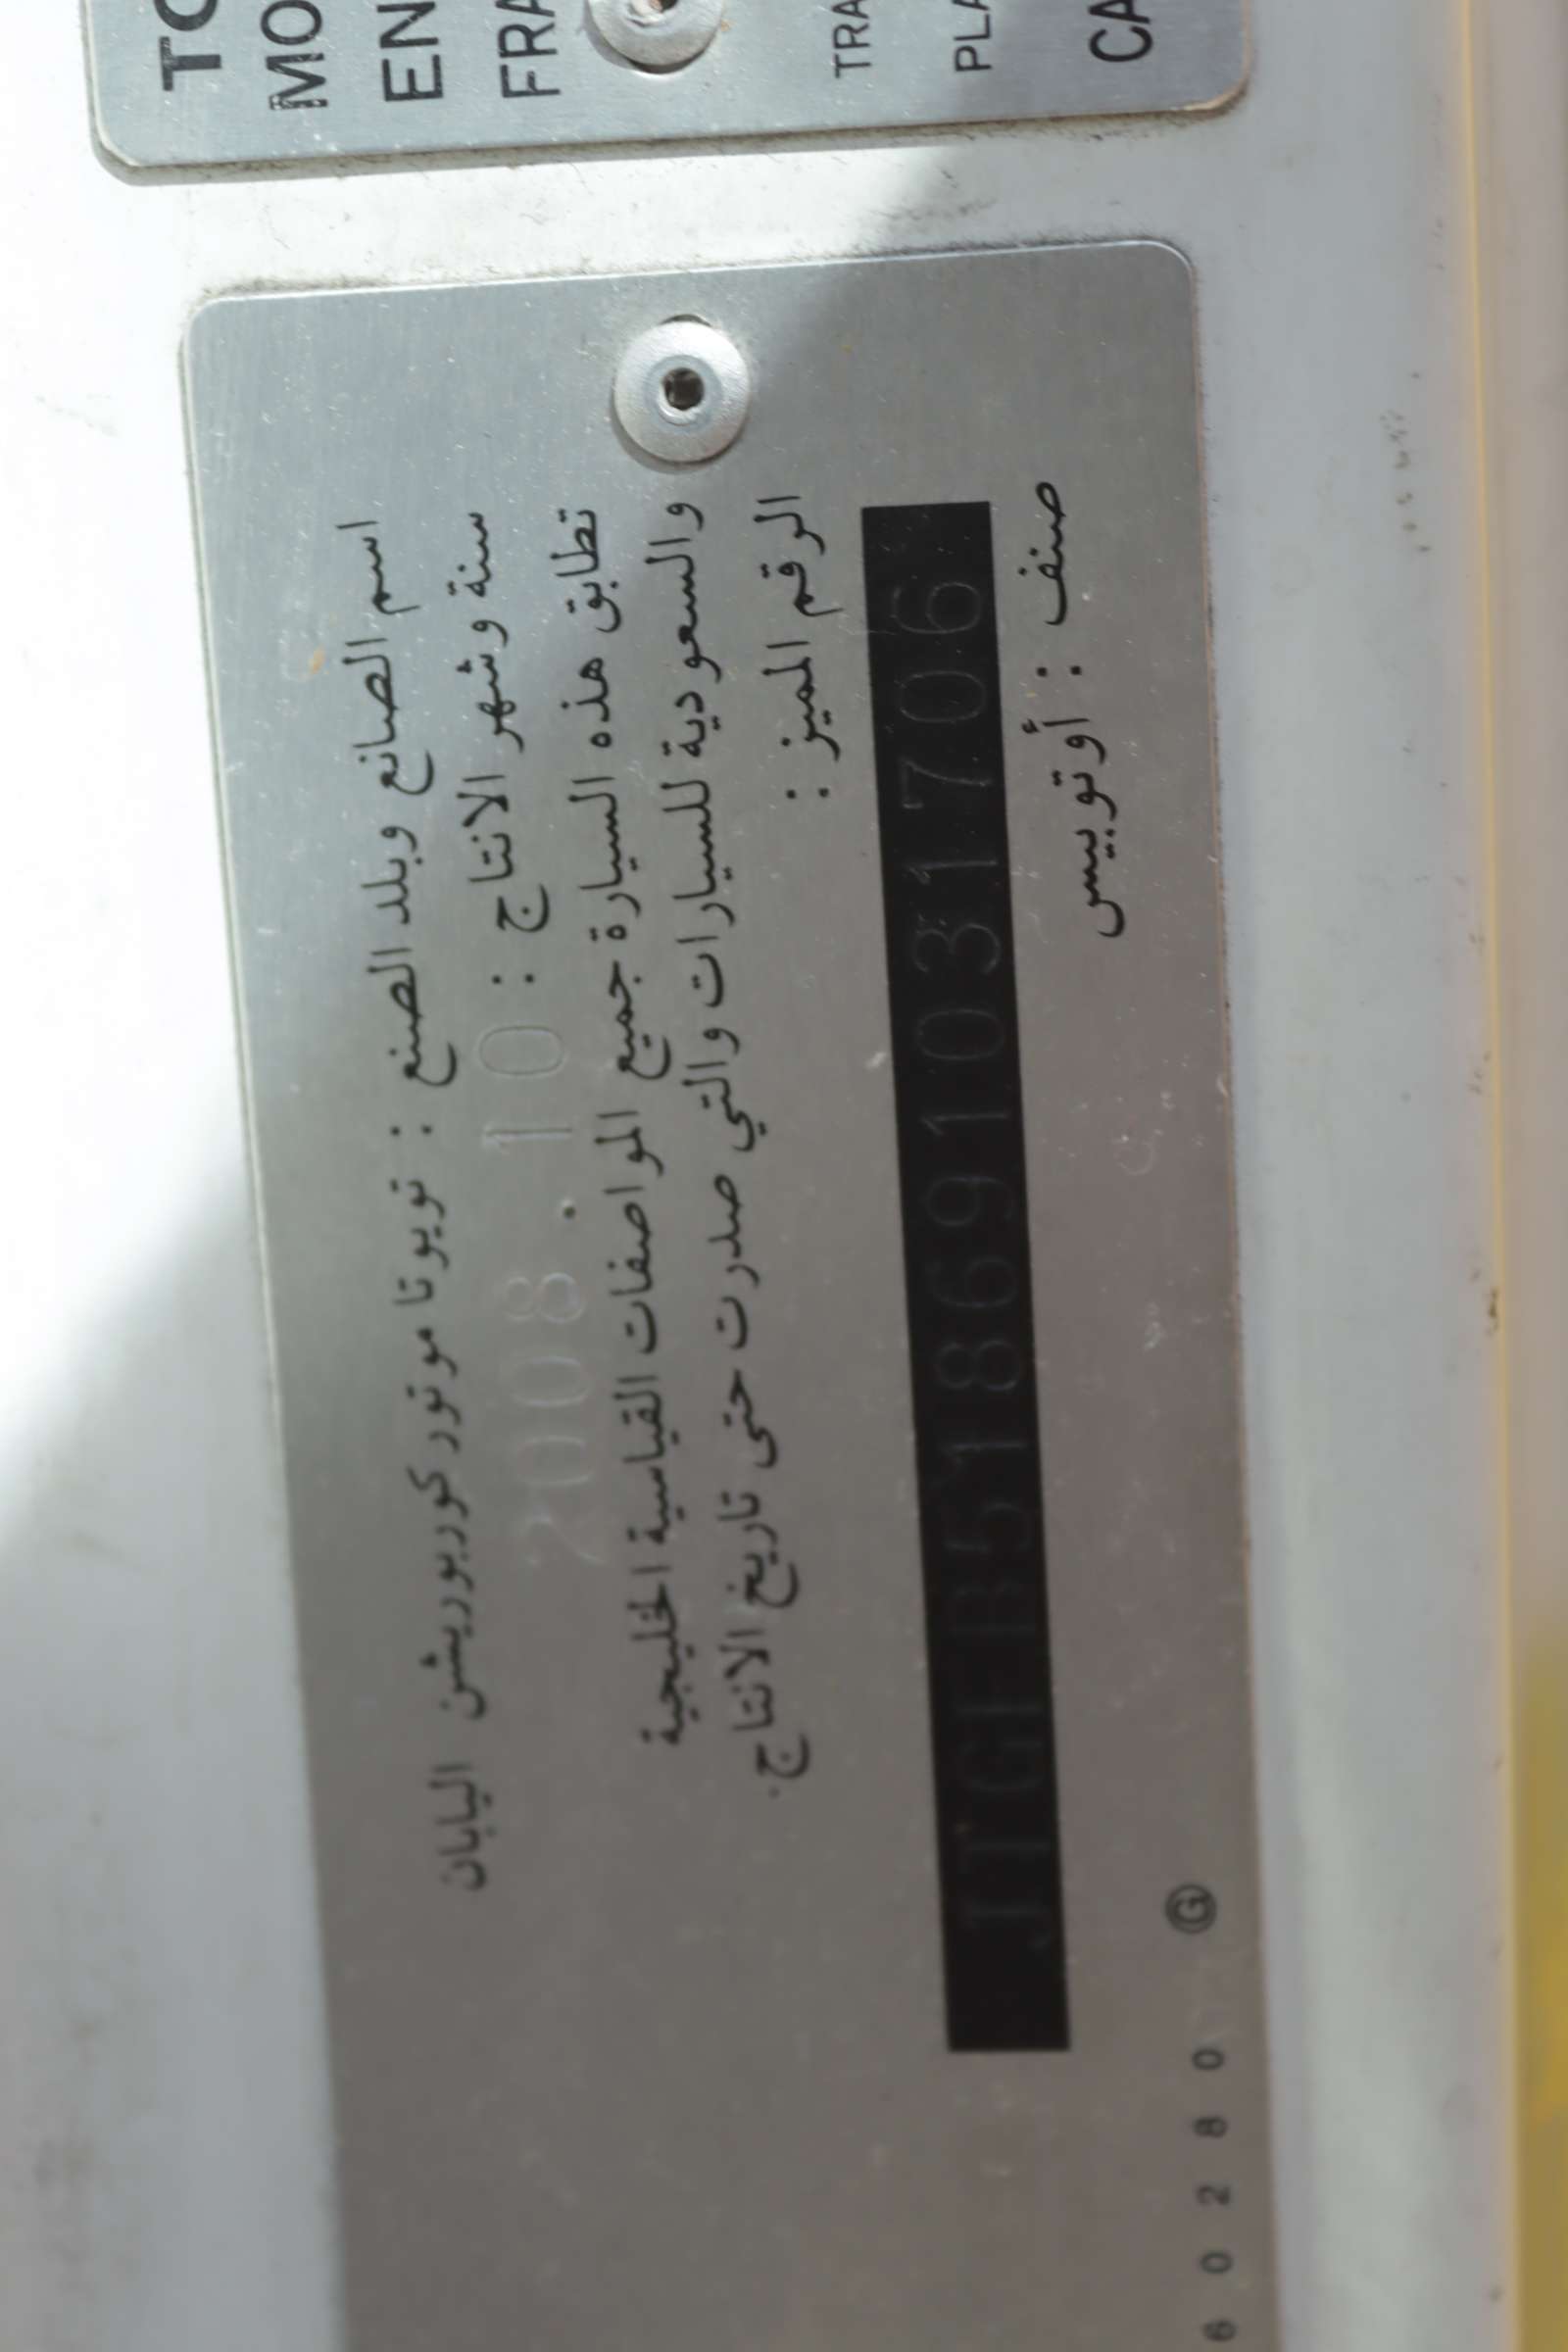 TO
MO
EN
FRA
TRA
PLA
CA
اسم الصانع وبلد الصنع : تويوتا موتور كوربوريشن اليابان
سنة وشهر الانتاج : 2008.10
تطابق هذه السيارة جميع المواصفات القياسية الخليجية
والسعودية للسيارات والتي صدرت حتى تاريخ الانتاج.
الرقم المميز :
JTGFB518691031706
صنف : أوتوبيس
6 0 2 8 0 Ⓖ